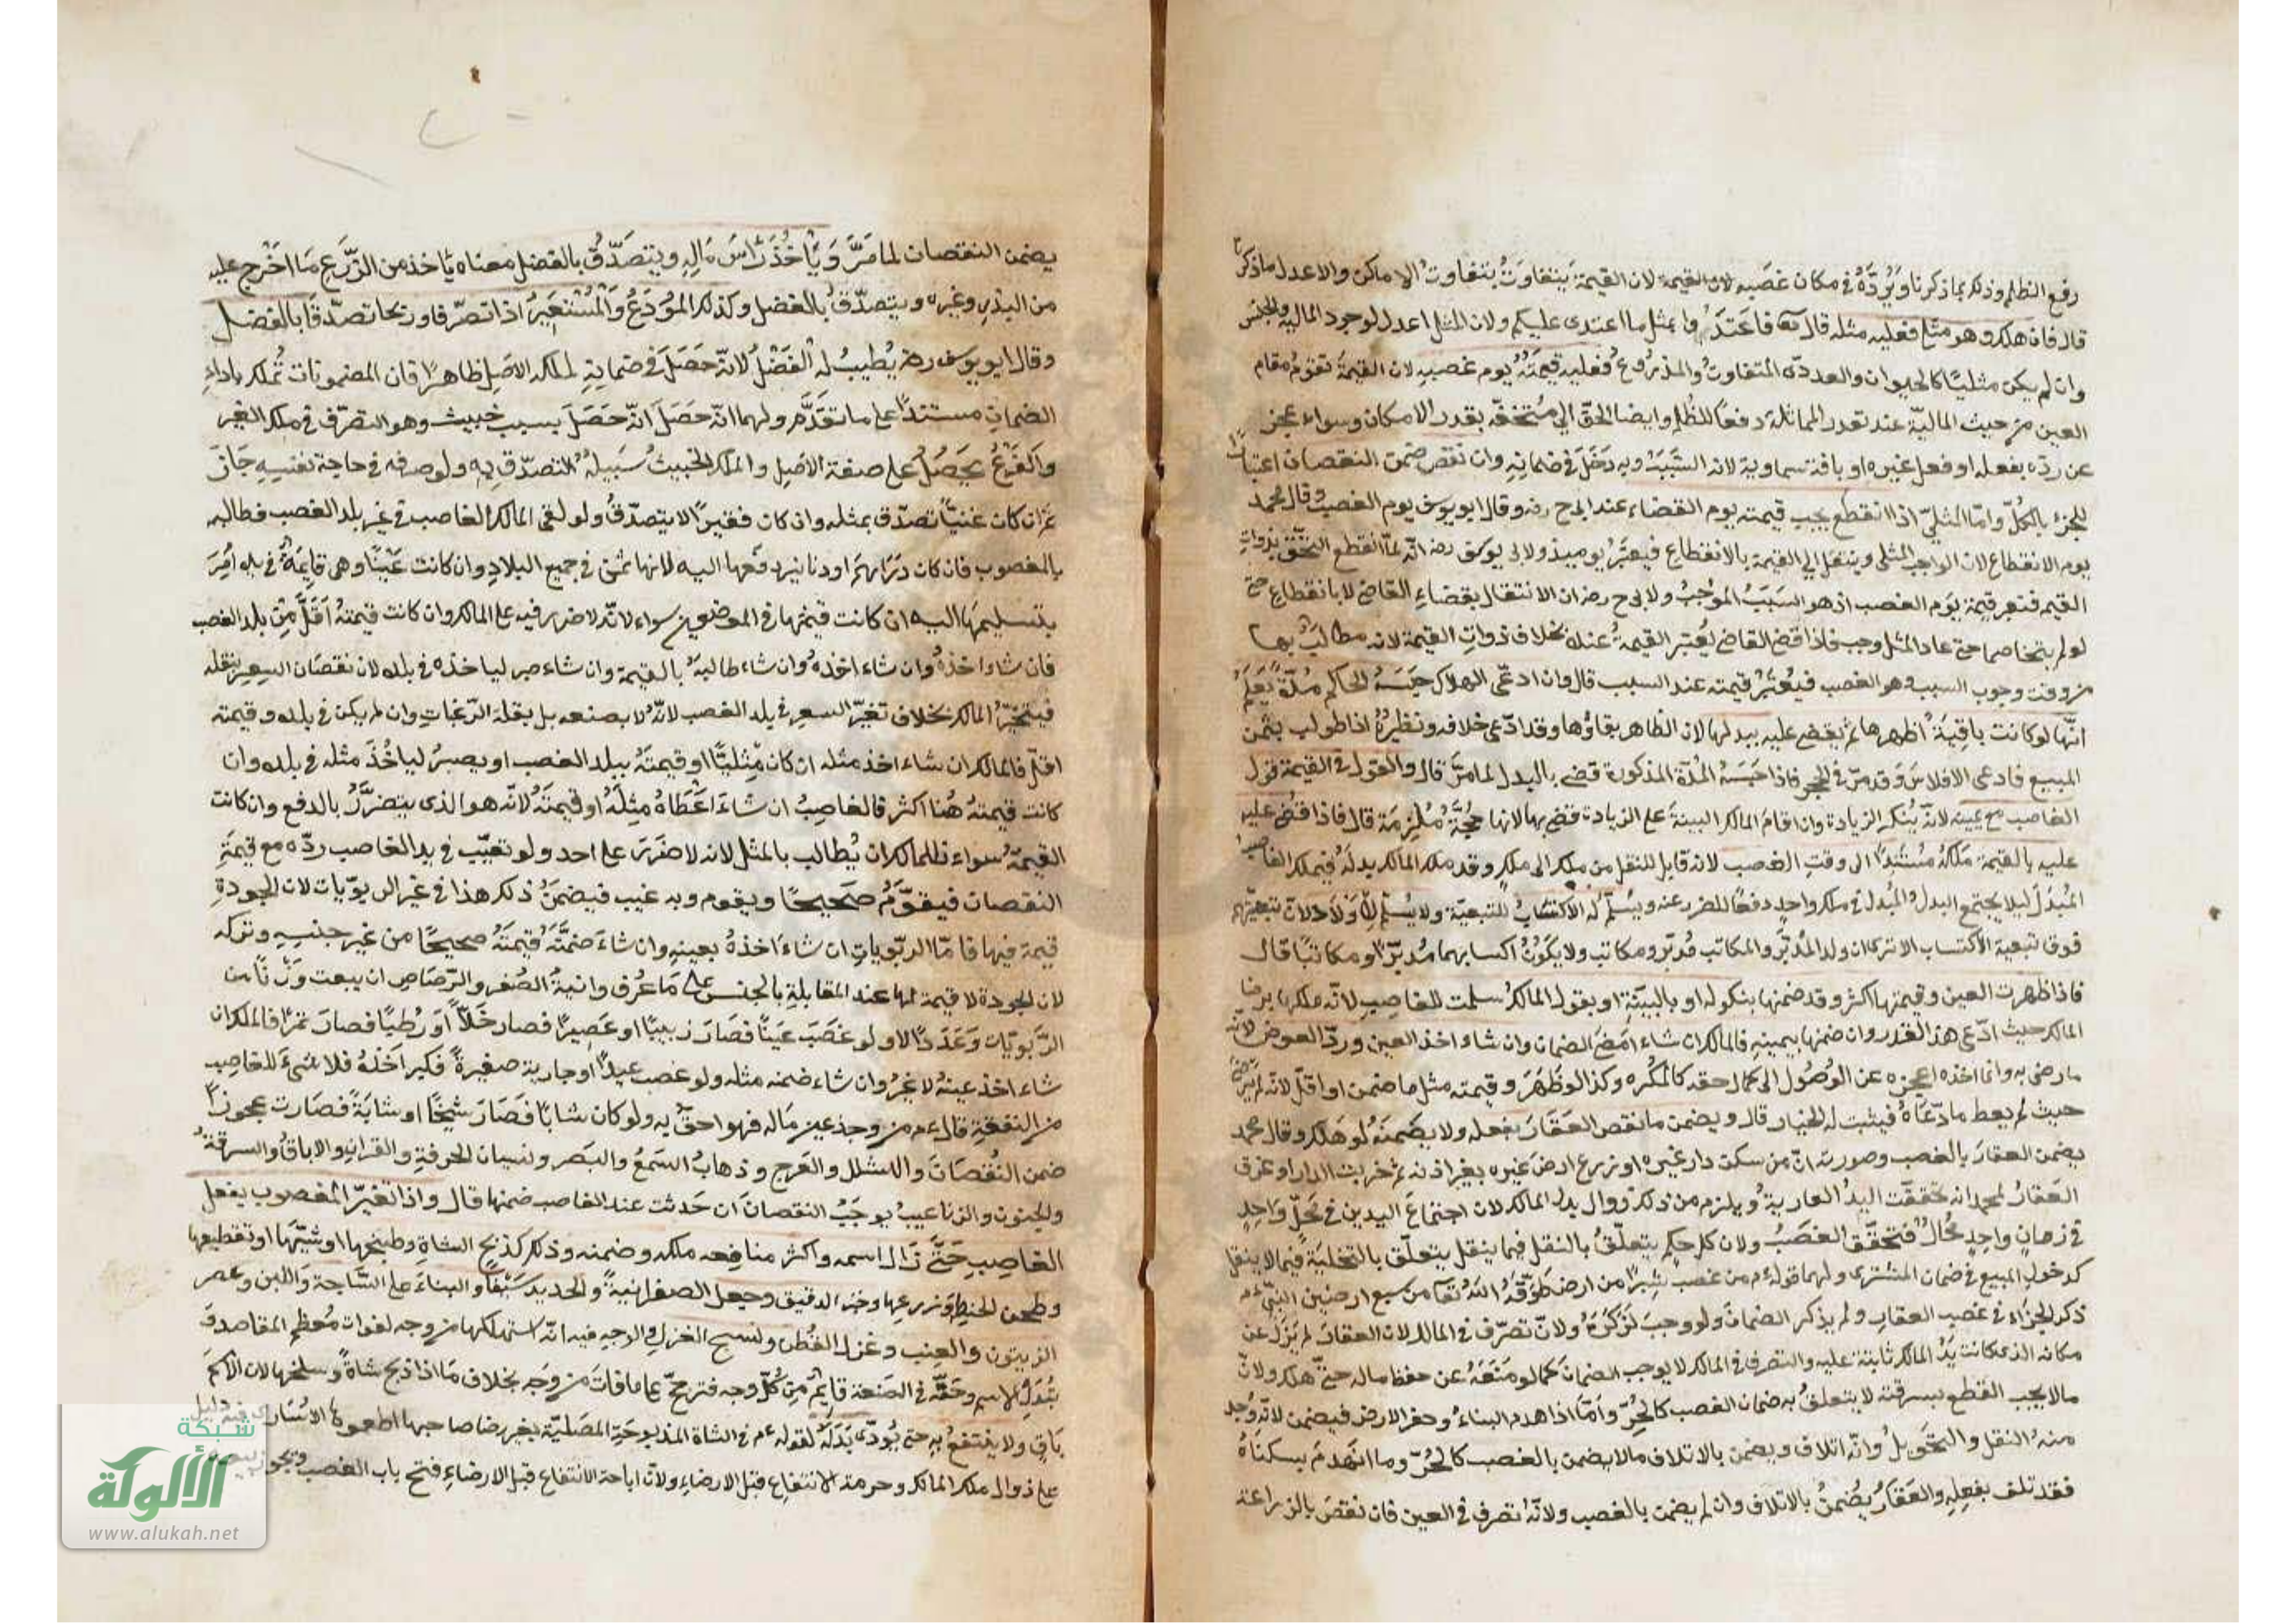 رفع الظلم وذلك بما ذكرنا ويردّه في مكان غصبه لان القيمة تتفاوت بتفاوت الاماكن والاعدل ما ذكرنا
قال فان هلك وهو مثلي فعليه مثله قال تعا فاعتدوا بمثل ما اعتدى عليكم ولان المثل اعدل لوجود المالية والجنس
وان لم يكن مثليًا كالحيوان والعددىّ المتفاوت والمذروع فعليه قيمته يوم غصبه لان القيمة تقوم مقام
العين من حيث المالية عند تعذر المماثلة دفعًا للظلم وايضا الحقّ الى مستحقّه بقدر الامكان وسواء عجز
عن ردّه بفعله او فعل غيره او بافة سماوية لانه السبب وبه دخل في ضمانه وان نقص ضمن النقصان اعتبارًا
للجزء بالكلّ وامّا المثلىّ اذا انقطع يجب قيمته يوم القضاء عند ابى ح رضه وقال ابو يوسف يوم الغصب وقال محمد
يوم الانقطاع لان الواجب المثلى وينتقل الى القيمة بالانقطاع فيعتبر يوميذ ولابى يوسف رضه انّه لمّا انقطع التحق بذوات
القيم فتعتبر قيمة يوم الغصب اذ هو السبب الموجب ولابى ح رضه ان الانتقال بقضاء القاضى لا بانقطاع حتى
لو لم يتخاصما حتى عاد المثل وجب فاذا قضى القاضى يعتبر القيمة عنده بخلاف ذوات القيمة لانه مطالب بها
من وقت وجوب السبب وهو الغصب فيعتبر قيمته عند السبب قال وان ادّعى الهلاك حبسه الحاكم مدّة يعلم
انّها لو كانت باقية اظهرها ثم يقضى عليه ببدلها لان الظاهر بقاؤها وقد ادّعى خلافه ونظيره اذا طولب بثمن
المبيع فادعى الافلاس وقد مرّ في الحجر فاذا حبسه المدّة المذكورة قضى بالبدل لما مرّ قال والقول في القيمة قول
الغاصب مع يمينه لانّه ينكر الزيادة وان اقام المالك البينة على الزيادة قضى بها لانها حجة ملزمة قال فاذا قضى عليه
عليه بالقيمة ملكه مستندًا الى وقت الغصب لانه قابل للنقل من ملك الى ملك وقد ملك المالك بدله فيملك الغاصب
المبدل ليلا يجتمع البدل والمبدل في ملك واحد دفعًا للضرر عنه ويسلّم له الاكتساب للتبعيّة ولا يسلّم له الاولاد لان تبعيّتهم
فوق تبعية الاكتساب الا ترى ان ولد المدبّر والمكاتب مدبّر ومكاتب ولا يكون اكسابهما مدبّرًا ومكاتبًا قال
فاذا ظهرت العين وقيمتها اكثر وقد ضمنها بنكوله او بالبينة او بقول المالك سلمت للغاصب لانّه ملكها برضا
المالك حيث ادّعى هذا القدر وان ضمنها بيمينه فالمالك ان شاء امضى الضمان وان شاء اخذ العين وردّ العوض لانّه
ما رضى به وانما اخذه لعجزه عن الوصول الى كمال حقه كالمكره وكذا لو ظهر وقيمته مثل ما ضمن او اقلّ لانه لم يرض
حيث لم يعط ما ادّعاه فيثبت له الخيار قال ويضمن ما نقص العقار بفعله ولا يضمنه لو هلك وقال محمد
يضمن العقار بالغصب وصورته انّ من سكن دار غيره او زرع ارض غيره بغير اذنه ثم خربت الدار او غرق
العقار لمحمد انه تحققت اليد العارية ويلزم من ذلك زوال يد المالك لان اجتماع اليدين في محلّ واحد
في زمان واحد محال فتحقّق الغصب ولان كل حكم يتعلّق بالنقل فيما ينقل يتعلّق بالتخلية فيما لا ينقل
كدخول المبيع في ضمان المشترى ولهما قوله ءم من غصب شبرًا من ارض طوّقه الله تعا من سبع ارضين النبى ءم
ذكر الجزاء في غصب العقار ولم يذكر الضمان ولو وجب لذكره ولانّ تصرّف في المالك لان العقار لم يزل عن
مكانه الذى كانت يد المالك ثابتة عليه والتصرف في المالك لا يوجب الضمان كما لو منعه عن حفظ ماله حتى هلك ولانّ
ما لا يجب القطع بسرقته لا يتعلق به ضمان الغصب كالحرّ وامّا اذا هدم البناء وحفر الارض فيضمن لانّه وجد
منه النقل والتحويل وانّه اتلاف ويضمن بالاتلاف ما لا يضمن بالغصب كالحرّ وما انهدم بسكناه
فقد تلف بفعله والعقار يضمن بالاتلاف وان لم يضمن بالغصب ولانّه تصرف في العين فان نقص بالزراعة
يضمن النقصان لما مرّ ويأخذ رأس ماله ويتصدّق بالفضل معناه ياخذ من الزرع ما اخرج عليه
من البذر وغيره ويتصدّق بالفضل وكذلك المودع والمستعير اذا تصرّفا وربحا تصدّقا بالفضل
وقال ابو يوسف رضه يطيب له الفضل لانّه حصل في ضمانه لملكه الاصل ظاهرًا فان المضمونات تملك باداء
الضمان مستندًا على ما تقدّم ولهما انّه حصل انّه حصل بسبب خبيث وهو التصرّف في ملك الغير
والفرع يحصل على صفة الاصل والملك الخبيث سبيله التصدّق به ولو صرفه في حاجة نفسه جاز
ثم ان كان غنيًا تصدّق بمثله وان كان فقيرًا لا يتصدّق ولو لقى المالك الغاصب في غير بلد الغصب فطالبه
بالمغصوب فان كان دراهم او دنانير دفعها اليه لانها ثمن في جميع البلاد وان كانت عينًا وهى قايمة في يده امر
بتسليمها اليه ان كانت قيمتها في الموضعين سواء لانّه لا ضرر فيه على المالك وان كانت قيمته اقلّ من بلد الغصب
فان شاء اخذه وان شاء اخذه وان شاء طالبه بالقيمة وان شاء صبر لياخذه في بلده لان نقصان السعر بنقله
فيتخيّر المالك بخلاف تغيّر السعر في بلد الغصب لانّه لا بصنعه بل بقلة الرّغبات وان لم يكن في بلده وقيمته
اقلّ فالمالك ان شاء اخذ مثله ان كان مثليًّا او قيمته ببلد الغصب او يصبر لياخذ مثله في بلده وان
كانت قيمته هنا اكثر فالغاصب ان شاء اعطاه مثله او قيمته لانّه هو الذى يتضرّر بالدفع وان كانت
القيمة سواء فللمالك ان يطالب بالمثل لانه لا ضرر على احد ولو تعيّب في يد الغاصب ردّه مع قيمة
النقصان فيقوّم صحيحًا ويقوم وبه عيب فيضمن ذلك هذا في غير الربويات لان الجودة
قيمة فيها فامّا الربويات ان شاء اخذه بعينه وان شاء ضمّنه قيمته صحيحًا من غير جنسه وتركه
لان الجودة لا قيمة لها عند المقابلة بالجنس على ما عرف وانية الصفر والرصاص ان بيعت وزنًا من
الرّبويّات وعددًا لا ولو غصب عينًا فصار زبيبًا او عصيرًا فصار خلًّا او رطبًا فصار تمرًا فالمالك ان
شاء اخذ عينه لا غير وان شاء ضمنه مثله ولو غصب عبدًا او جارية صغيرة فكبر اخذه فلا شىء للغاصب
من النفقة قال ءم من وجد عين ماله فهو احقّ به ولو كان شابًا فصار شيخًا او شابّة فصارت عجوزًا
ضمن النقصان والشلل والعرج وذهاب السمع والبصر ونسيان الحرفة والقران والاباق والسرقة
والجنون والزنا عيب يوجب النقصان ان حدثت عند الغاصب ضمنها قال واذا تغيّر المغصوب بفعل
الغاصب حتّى زال اسمه واكثر منافعه ملكه وضمنه وذلك كذبح الشاة وطبخها او شيّها او تقطيعها
وطحن الحنطة وزرعها وخبز الدقيق وجعل الصفر انية والحديد سيفًا والبناء على السّاجة واللبن وعصر
الزيتون والعنب وغزل القطن ونسج الغزل والوجه فيه انّه استهلكها من وجه لفوات معظم المقاصد و
تبدل الاسم وحقّه في الصنعة قايم من كلّ وجه فترجّح على ما فات من وجه بخلاف ما اذا ذبح شاة وسلخها لان الاسم
باق ولا ينتفع به حتى يودّى بدله لقوله ءم في الشاة المذبوحة المصليّة بغير رضا صاحبها اطعموها الاسارى فيه دليل
على زوال ملك المالك وحرمة الانتفاع قبل الارضاء ولان اباحة الانتفاع قبل الارضاء فتح باب الغصب
شبكة
الألوكة
www.alukah.net